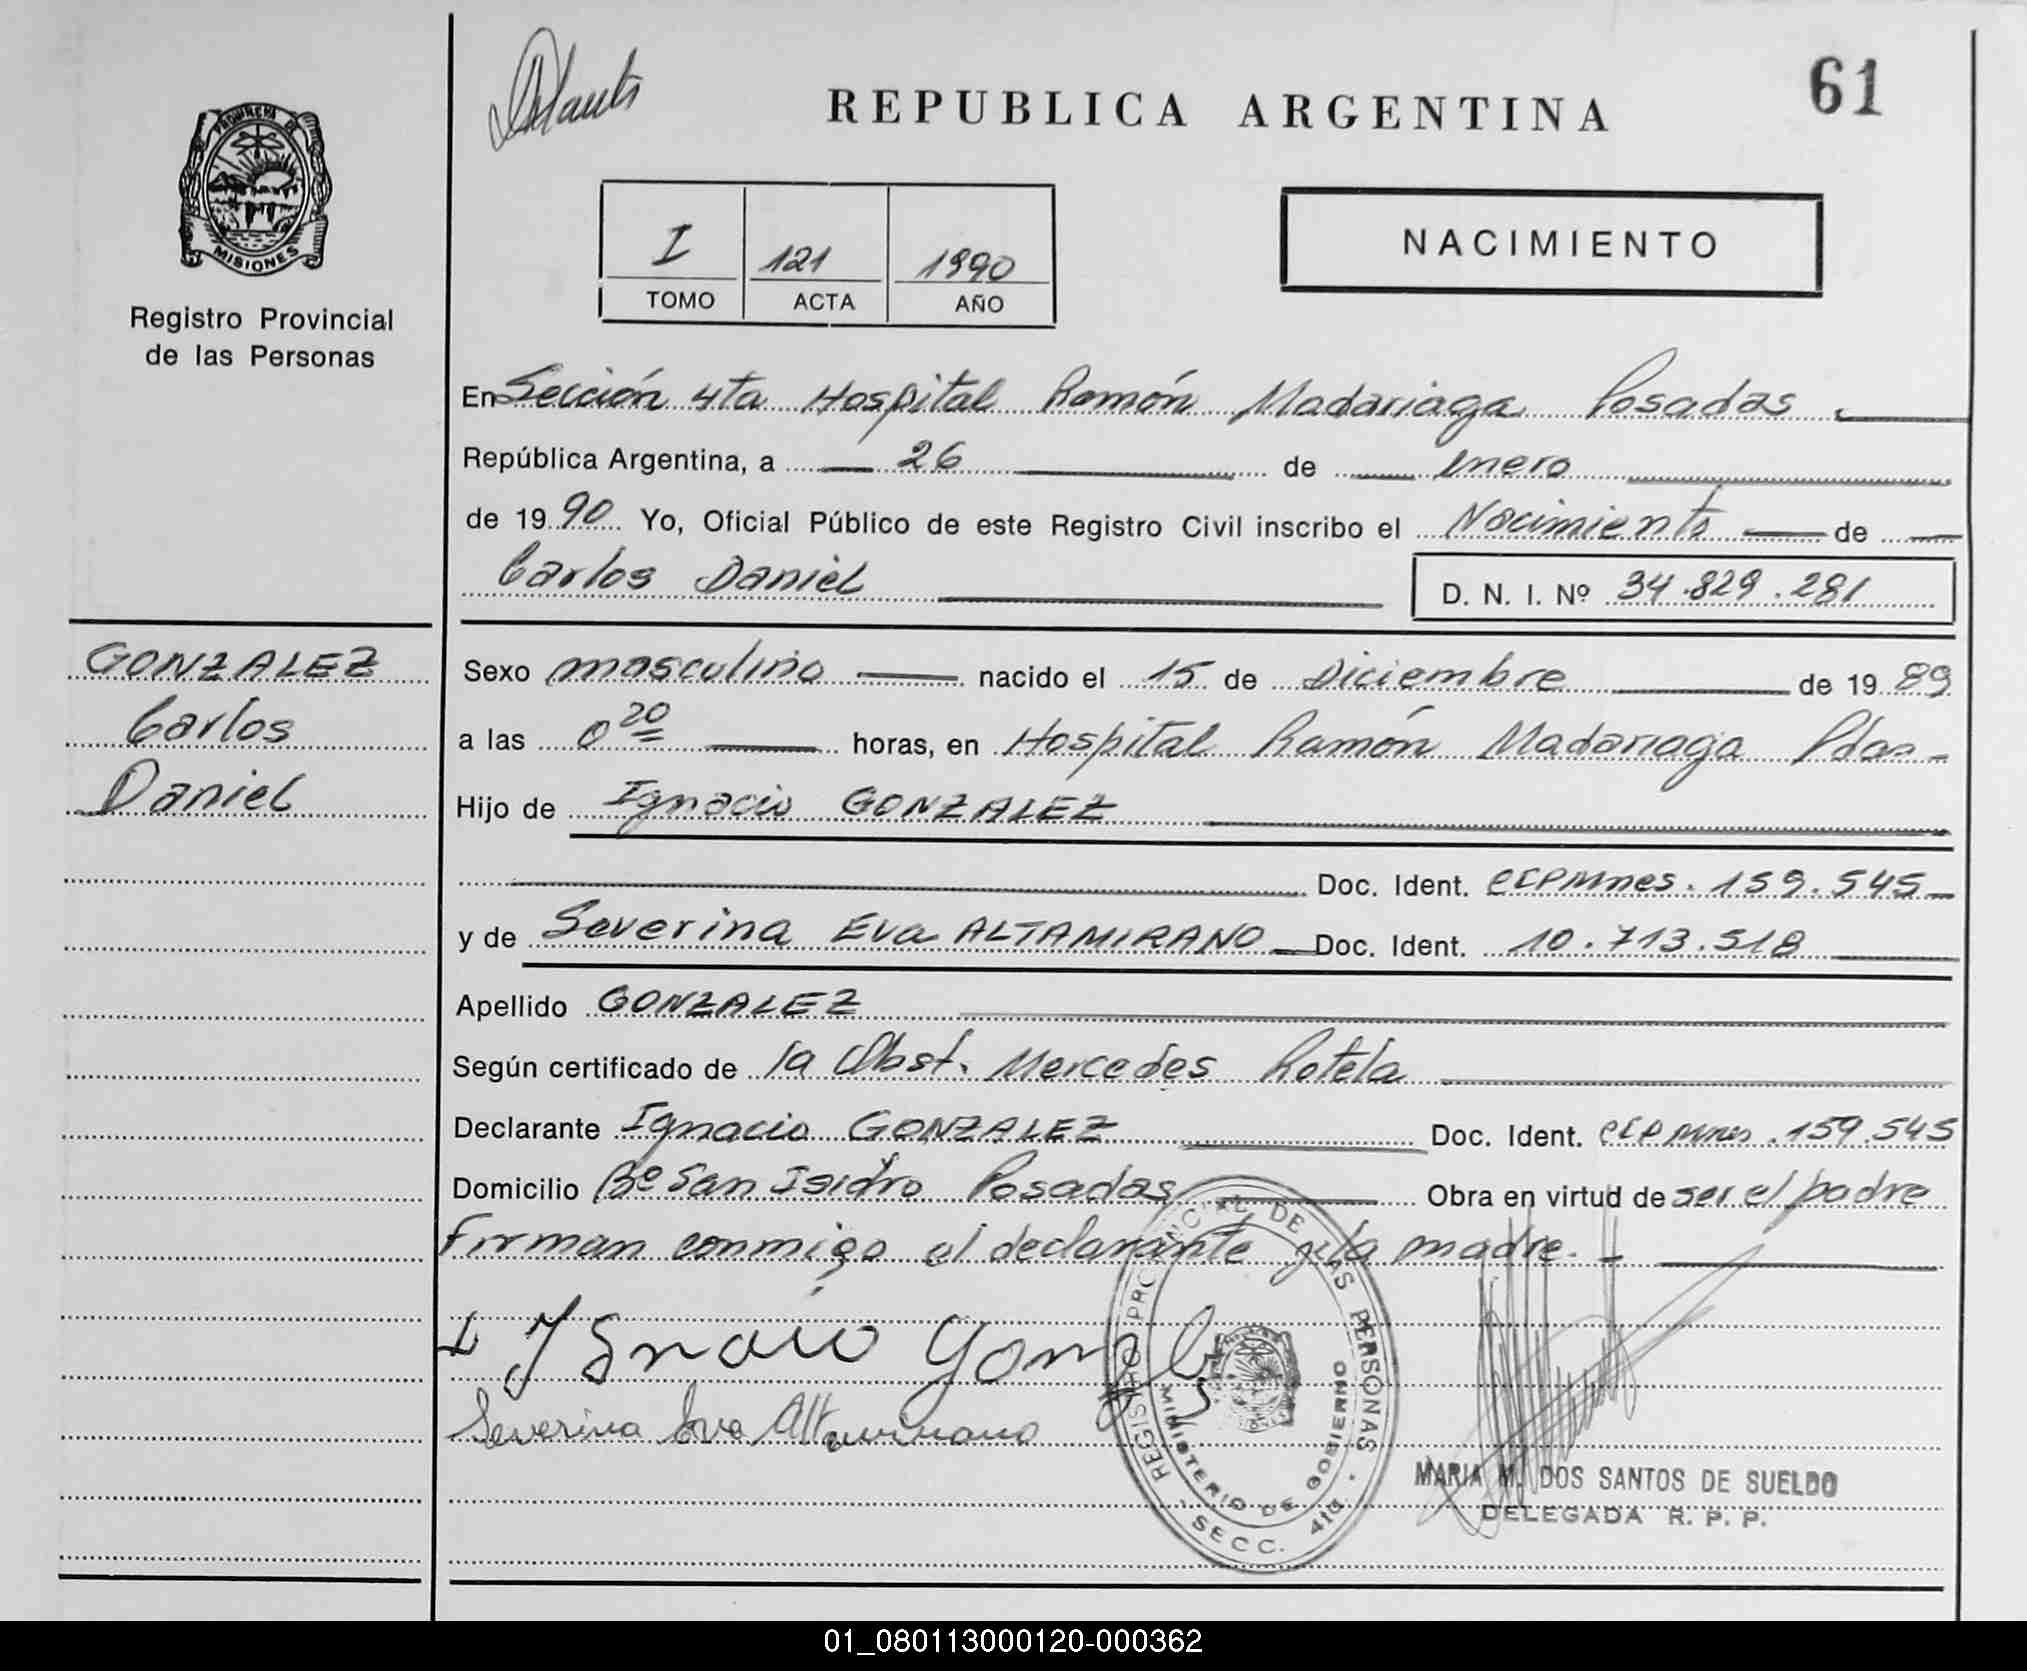 REPUBLICA ARGENTINA
61
PROVINCIA DE
MISIONES
Registro Provincial
de las Personas
I 121 1990
TOMO ACTA AÑO
NACIMIENTO
En Sección 4ta Hospital Ramón Madariaga Posadas
República Argentina, a 26 de enero
de 1990 Yo, Oficial Público de este Registro Civil inscribo el Nacimiento de
Carlos Daniel D. N. I. Nº 34.829.281
GONZALEZ
Carlos
Daniel
Sexo masculino nacido el 15 de Diciembre de 1989
a las 0 20 horas, en Hospital Ramón Madariaga Pdas
Hijo de Ignacio GONZALEZ
Doc. Ident. CIPMnes. 159.545
y de Severina Eva ALTAMIRANO Doc. Ident. 10.713.518
Apellido GONZALEZ
Según certificado de la Obst. Mercedes Rotela
Declarante Ignacio GONZALEZ Doc. Ident. CIPMnes. 159.545
Domicilio Bº San Isidro Posadas Obra en virtud de ser el padre
Firman conmigo el declarante y la madre.
Severina Eva Altamirano
REGISTRO PROVINCIAL DE LAS PERSONAS
MINISTERIO DE GOBIERNO
SECC. 4ta.
MARIA M. DOS SANTOS DE SUELDO
DELEGADA R. P. P.
01_080113000120-000362